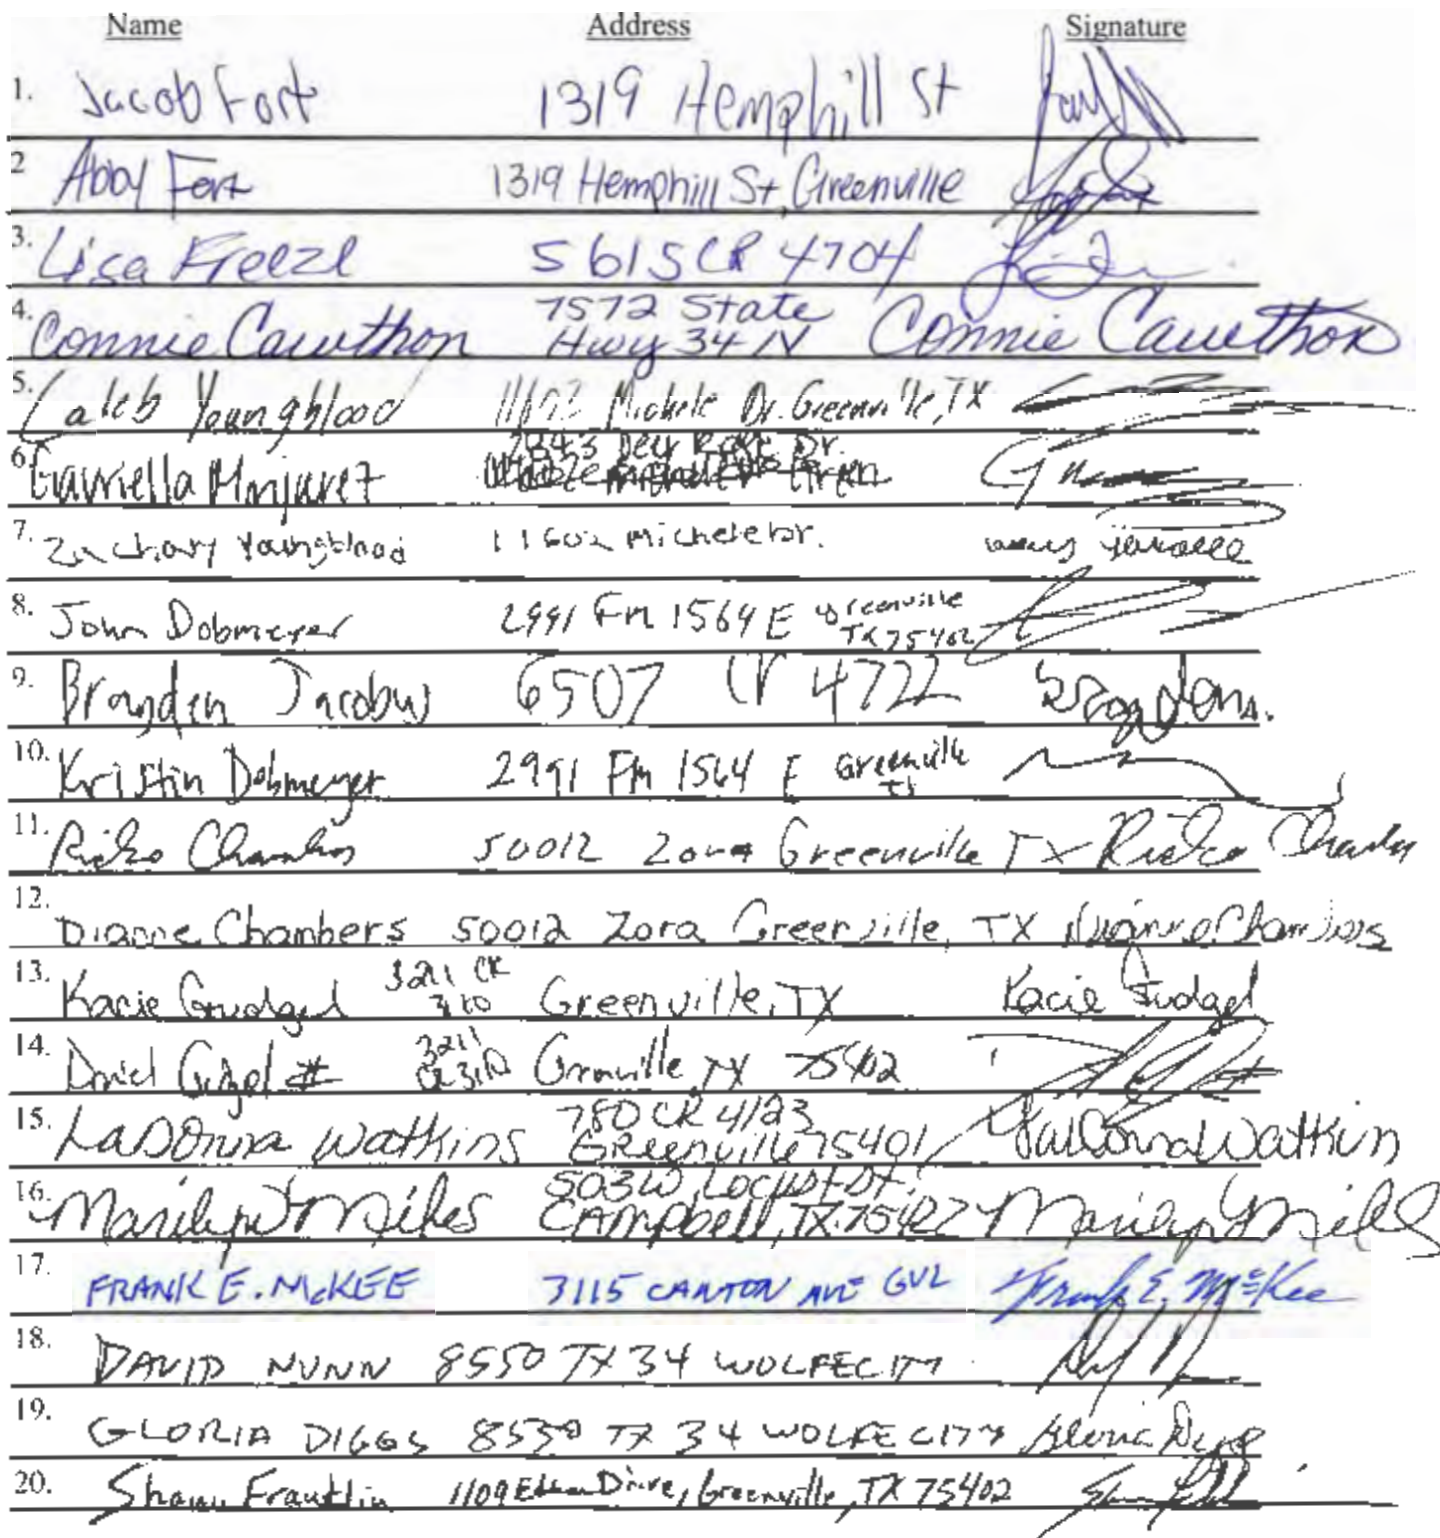 Name Address Signature
1. Jacob Fort 1319 Hemphill St
2 Abby Fort 1319 Hemphill St, Greenville
3. Lisa Freeze 5615 CR 4704
4. Connie Cawthon 7572 State Hwy 34 N Connie Cawthon
5. Caleb Youngblood Michele Dr. Greenville, TX
6. Dr.
7. Zachary Youngblood 11602 Michele Dr.
8. John Dobmeyer 2991 Fm 1564 E Greenville TX 75402
9. Brayden Jacobus 6507 Cr 4722 Brayden
10. Kristin Dobmeyer 2991 Fm 1564 E Greenville TX
11. Chambers 50012 Zora Greenville TX
12. Dianne Chambers 50012 Zora Greenville, TX Dianne Chambers
13. Kacie Gudgel 3211 CR 3110 Greenville, TX Kacie Gudgel
14. 3211 Greenville, TX 75402
15. LaDonna Watkins 780 CR 4123 Greenville 75401 LaDonna Watkins
16. Marilyn 503 W. Locust St. Campbell, TX. 75422 Marilyn
17. FRANK E. McKEE 3115 CANTON AVE GVL Frank E. McKee
18. DAVID NUNN 8550 TX 34 WOLFE CITY
19. GLORIA DIGGS 8550 TX 34 WOLFE CITY Gloria Diggs
20. Shawn Franklin 1109 Drive, Greenville, TX 75402